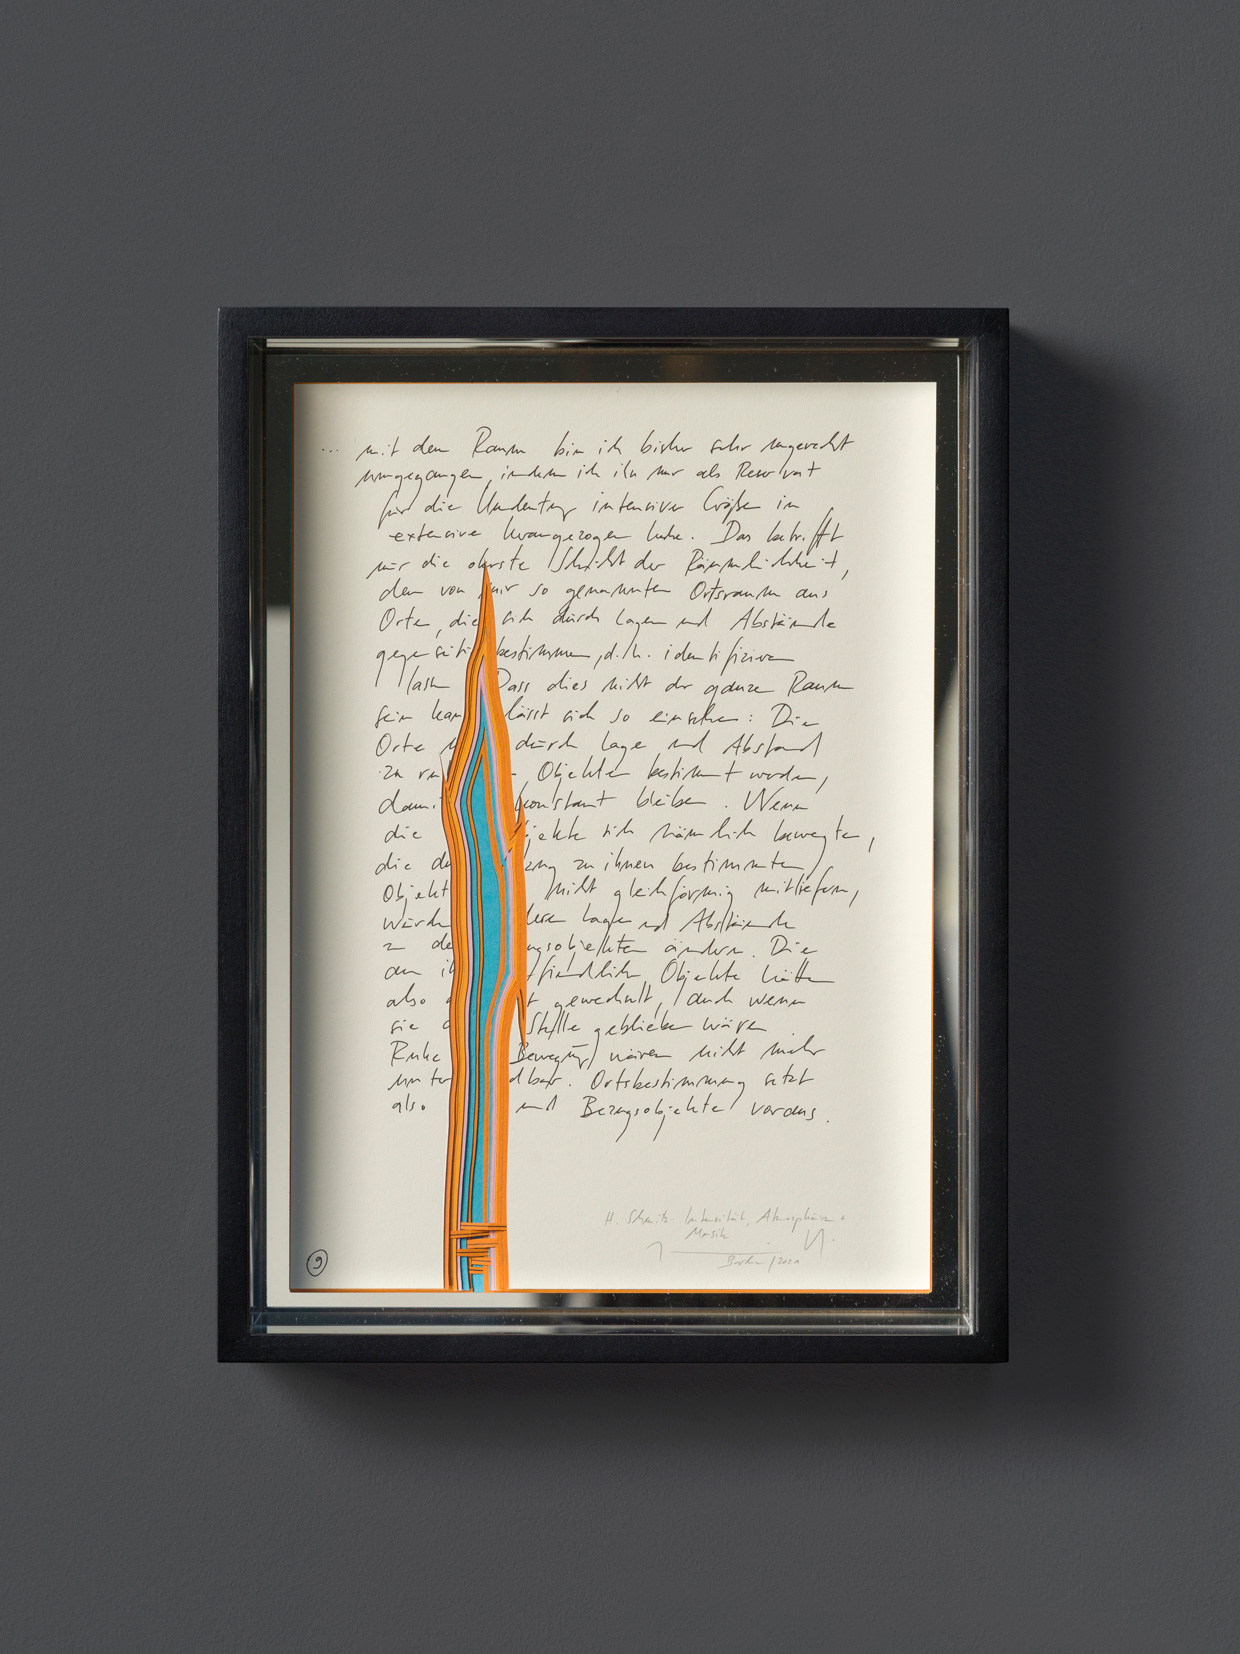 ... mit dem Raum bin ich bisher sehr ungerecht
umgegangen, indem ich ihn nur als Reservat
für die Umdeutung intensiver Größe in
extensive herangezogen habe. Das betrifft
nur die oberste Schicht der Räumlichkeit,
den von mir so genannten Ortsraum aus
Orten, die sich durch Lagen und Abstände
gegenseitig bestimmen, d.h. identifizieren
lassen Dass dies nicht der ganze Raum
sein kann lässt sich so einsehen: Die
Orte durch Lage und Abstand
zu Objekten bestimmt werden,
damit konstant bleiben. Wenn
die jekte sich nämlich bewegten,
die du zung zu ihnen bestimmten
Objekt nicht gleichförmig mitliefen,
würde deren Lagen und Abstände
zu de ngsobjekten ändern. Die
an ih findlichen Objekte hätten
also t gewechselt, auch wenn
sie Stelle geblieben wären
Ruhe Bewegung wären nicht mehr
unter dbar. Ortsbestimmung setzt
also und Bezugsobjekte voraus.
H. Schmitz: Intensität, Atmosphären +
Musik
Berlin / 2021
9